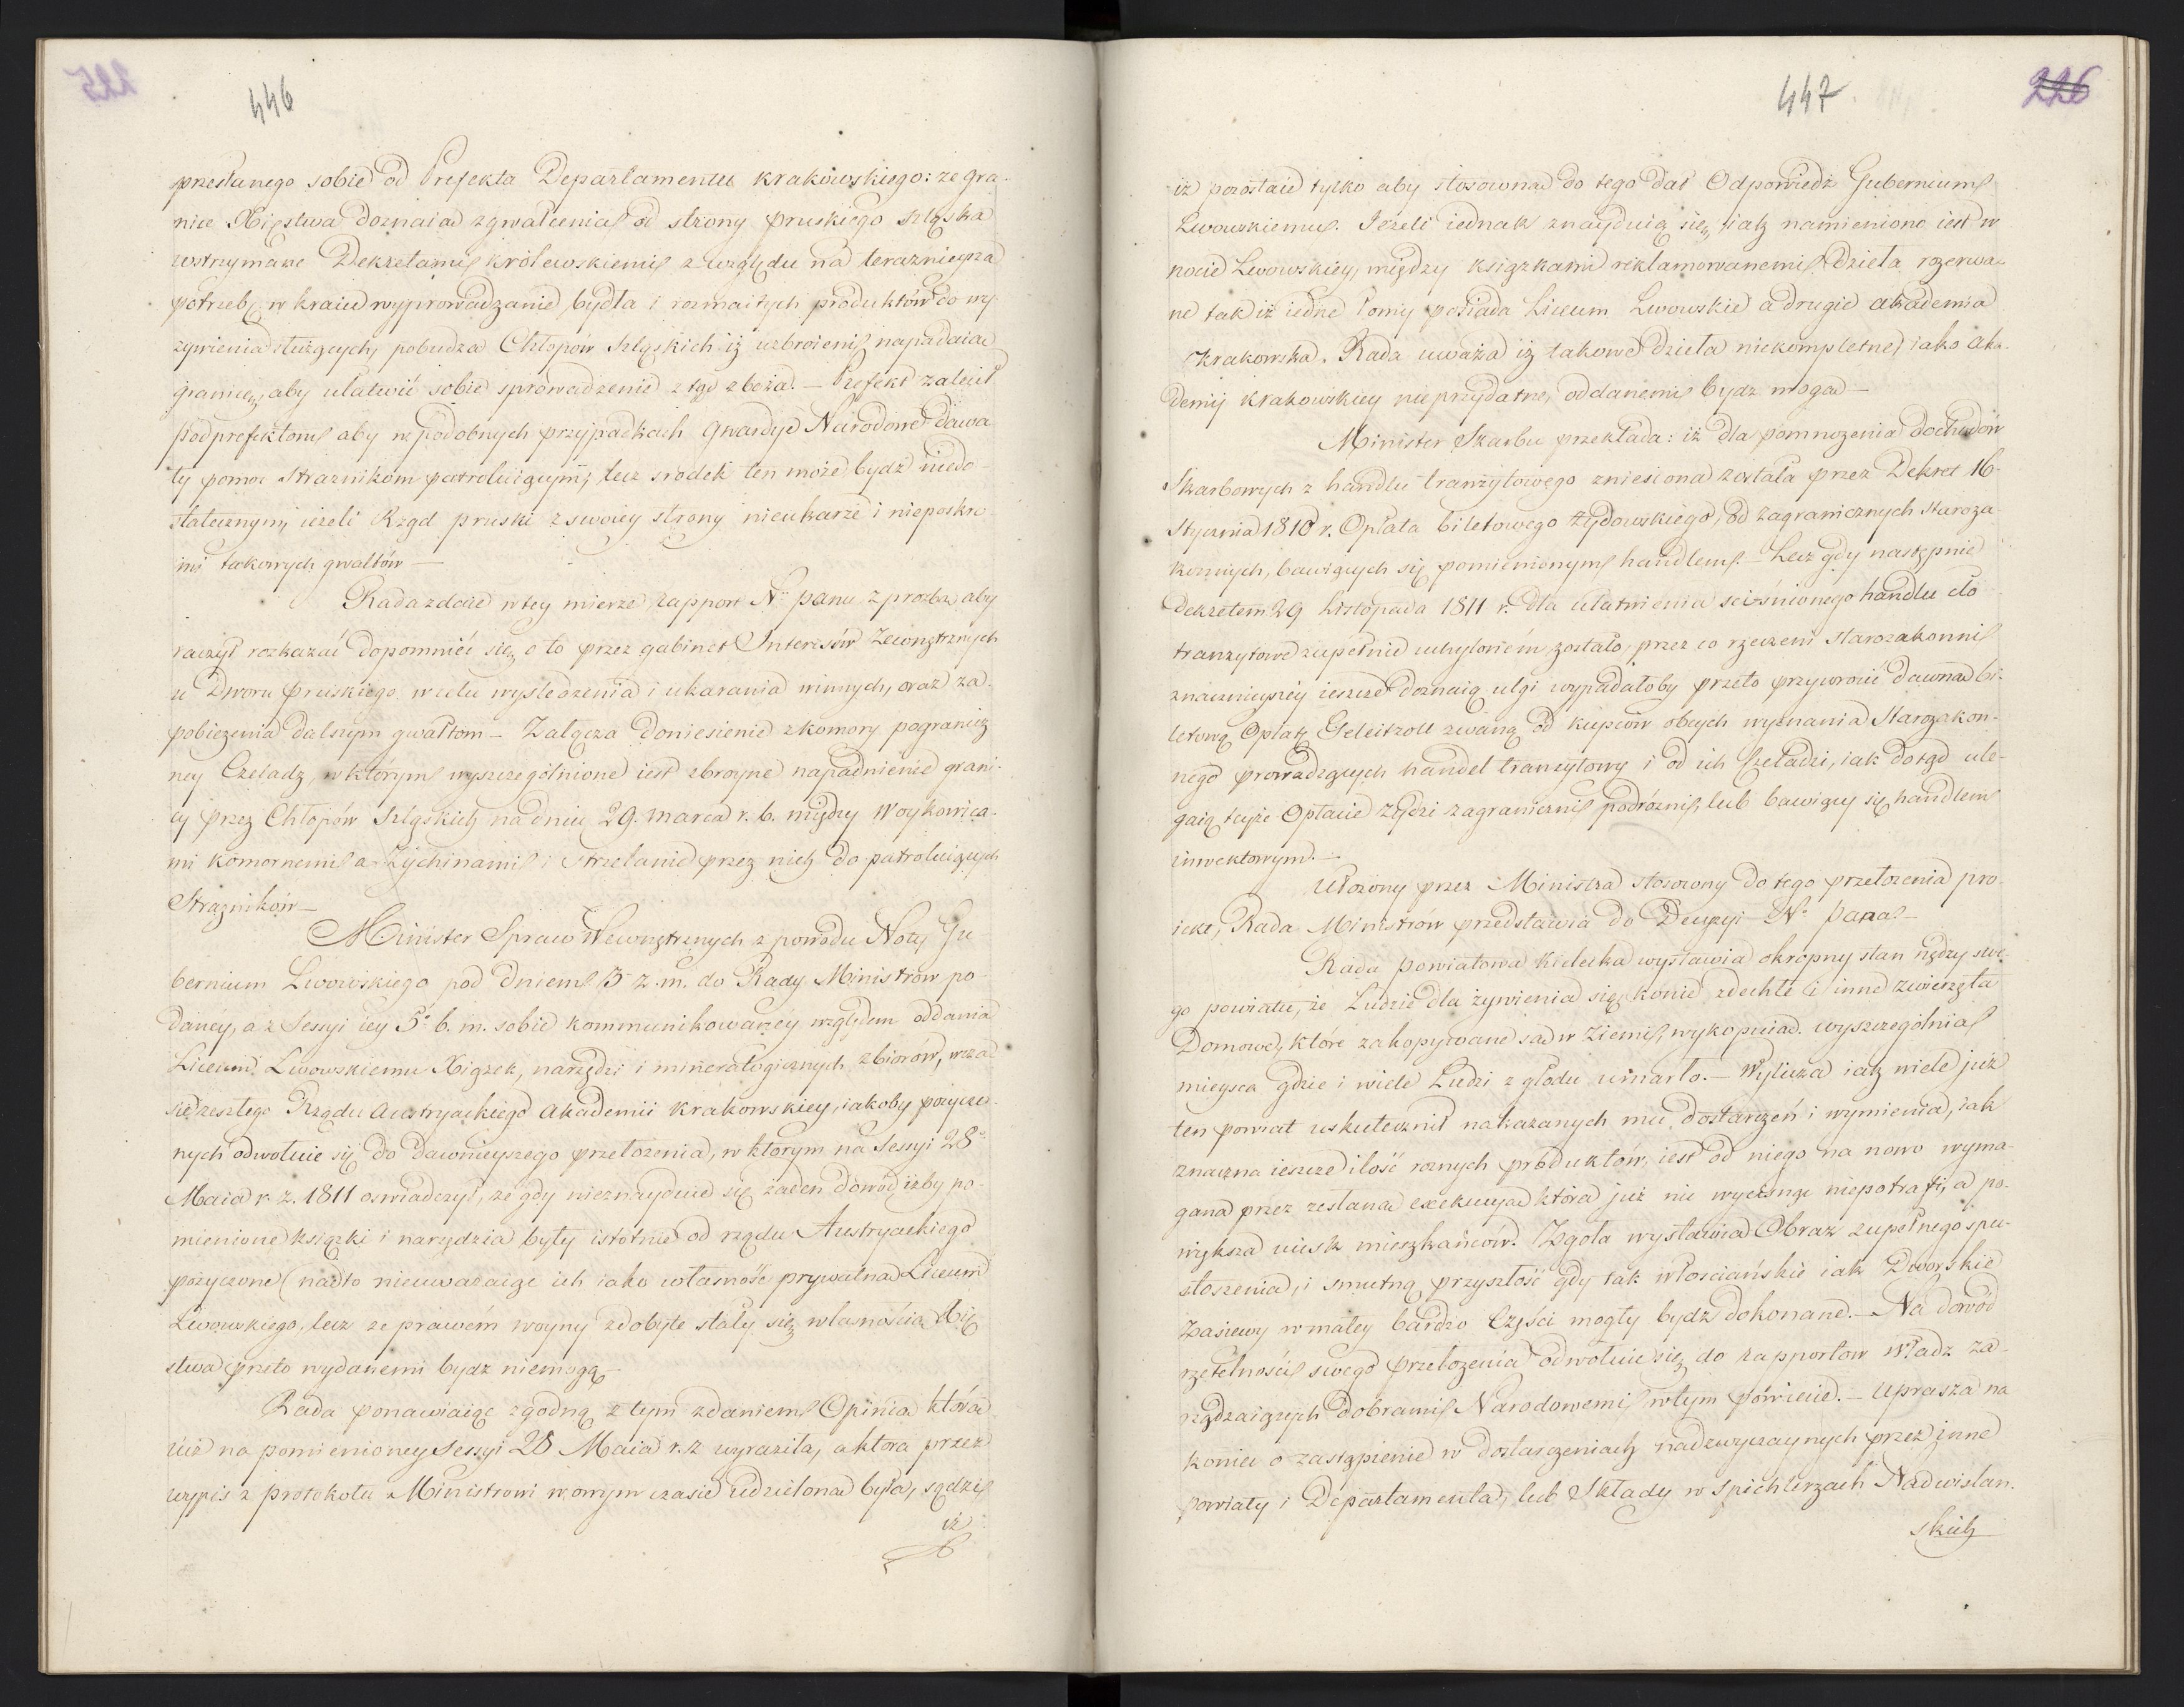 446
przesłanego sobie od Prefekta Departamentu Krakowskiego: że gra-
nice Xięstwa doznaią zgwałcenia od strony pruskiego Szląska
wstrzymane Dekretami królewskiemi z względu na teraznieyszą
potrzebę w kraiu wyprowadzanie bydła i rozmaitych produktów do wy-
żywienia służących, pobudza Chłopów Szląskich iż uzbroieni napadaią
granicę, aby ułatwić sobie sprowadzenie ztąd zboża. – Prefekt zalecił
Podprefektom aby w podobnych przypadkach Gwardye Narodowe dawa-
ły pomoc Strażnikom patroluiącym, lecz srodek ten może bydź niedo-
statecznym, ieżeli Rząd pruski z swoiey strony nieukarze i nieposkro-
mi takowych gwałtów –
Rada zdaie w tey mierze rapport N. panu z prozbą aby
raczył rozkazać dopomnieć się o to przez gabinet Interesów Zewnętrznych
u Dworu pruskiego w celu wysledzenia i ukarania winnych, oraz za-
pobieżenia dalszym gwałtom – Załącza Doniesienie z komory pogranicz
ney Czeladz, w którym wyszczególnione iest zbroyne napadnienie grani-
cy przez Chłopów Szląskich na dniu 29. marca r. b. między Woykowica-
mi komornemi a Zychinami i strzelanie przez nich do patroluiących
Strażników –
Minister Spraw Wewnętrznych z powodu Noty Gu-
bernium Lwowskiego pod dniem 3 z. m. do Rady Ministrów po-
daney, a z Sessyi iey 5. b. m. sobie kommunikowaney względem oddania
Liceum Lwowskiemu Xiążek, narzędzi i mineralogicznych zbiorów, w cza-
sie zeszłego Rządu Austryackiego Akademii Krakowskiey, iakoby pożyczo-
nych odwołuie się do dawnieyszego przełożenia, w którym na Sessyi 28.
Maia r. z. 1811 oswiadczył, że gdy nieznayduie się żaden dowód iżby po-
mienione książki i narzędzia były istotnie od rządu Austryackiego
pożyczone (nadto nieuważaiąc ich iako własność prywatną Liceum
Lwowskiego, lecz że prawem woyny zdobyte stały się własnością Xię-
stwa przeto wydanemi bydz niemogą –
Rada ponawiaiąc zgodną z tym zdaniem Opinią którą
iuż na pomienioney Sessyi 28 Maia r. z wyraziła, a która przez
wypis z protokołu Ministrowi w owym czasie udzieloną była, sądzi
iż
447
226
iż pozostaie tylko aby stosowną do tego dał Odpowiedź Gubernium
Lwowskiemu. Jeżeli iednak znayduią się, iak namieniono iest w
nocie Lwowskiey, między książkami reklamowanemi Dzieła rozerwa-
ne tak iż iedne Tomy posiada Liceum Lwowskie a drugie Akademia
Krakowska. Rada uważa iż takowe dzieła niekompletne, iako Aka-
demij Krakowskiey nieprzydatne, oddanemi bydz mogą –
Minister Skarbu przekłada: iż dla pomnożenia dochodów
Skarbowych z handlu tranzytowego zniesioną została przez Dekret 16
Stycznia 1810 r. Opłata biletowego żydowskiego, od zagranicznych Staroza-
konnych, bawiących się pomienionym handlem. – Lecz gdy następnie
Dekretem 29 Listopada 1811 r. dla ułatwienia scieśnionego handlu cło
tranzytowe zupełnie uchylonem zostało, przez co rzeczeni Starozakonni
znacznieyszey ieszcze doznaią ulgi wypadałoby przeto przywrócić dawną bi-
letową Opłatę Geleitzoll zwaną od kupców obcych wyznania Starozakon-
nego prowadzących handel tranzytowy i od ich Czeladzi, iak dotąd ule-
gaią teyże Opłacie Żydzi zagraniczni podróżni, lub bawiący się handlem
inwektowym. –
Ułożony przez Ministra stosowny do tego przełożenia pro-
iekt, Rada Ministrów przedstawia do Decyzyi N. Pana –
Rada powiatowa Kielecka wystawia okropny stan nędzy swe-
go powiatu, że Ludzie dla żywienia się, konie zdechłe i inne zwierzęta
Domowe, które zakopywane są w Ziemi, wykopuią. Wyszczególnia
mieysca gdzie i wiele Ludzi z głodu umarło. – Wylicza iak wiele już
ten powiat uskutecznił nakazanych mu dostarczeń i wymienia, iak
znaczna ieszcze ilość roznych produktów, iest od niego na nowo wyma-
gana przez zesłaną exekucyą która już nic wycisnąć niepotrafi, a po-
większa ucisk mieszkańców. Zgoła wystawia Obraz zupełnego spu-
stoszenia, i smutną przyszłość gdy tak włosciańskie iak Dworskie
zasiewy w małey bardzo Części mogły bydz dokonane. – Na dowód
rzetelności swego przełożenia odwołuie się do rapportow Władz za-
rządzaiących Dobrami Narodowemi w tym powiecie. – Uprasza na
koniec o zastąpienie w dostarczeniach nadzwyczaynych przez inne
powiaty i Departamenta, lub Składy w Spichlerzach Nadwislan-
skich